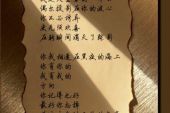 偶尔投影在你的波心
你不必讶异
更无须欢喜
在转瞬间消灭了踪影
你我相逢在黑夜的海上
你有你的
我有我的
方向
你记得也好
最好你忘掉